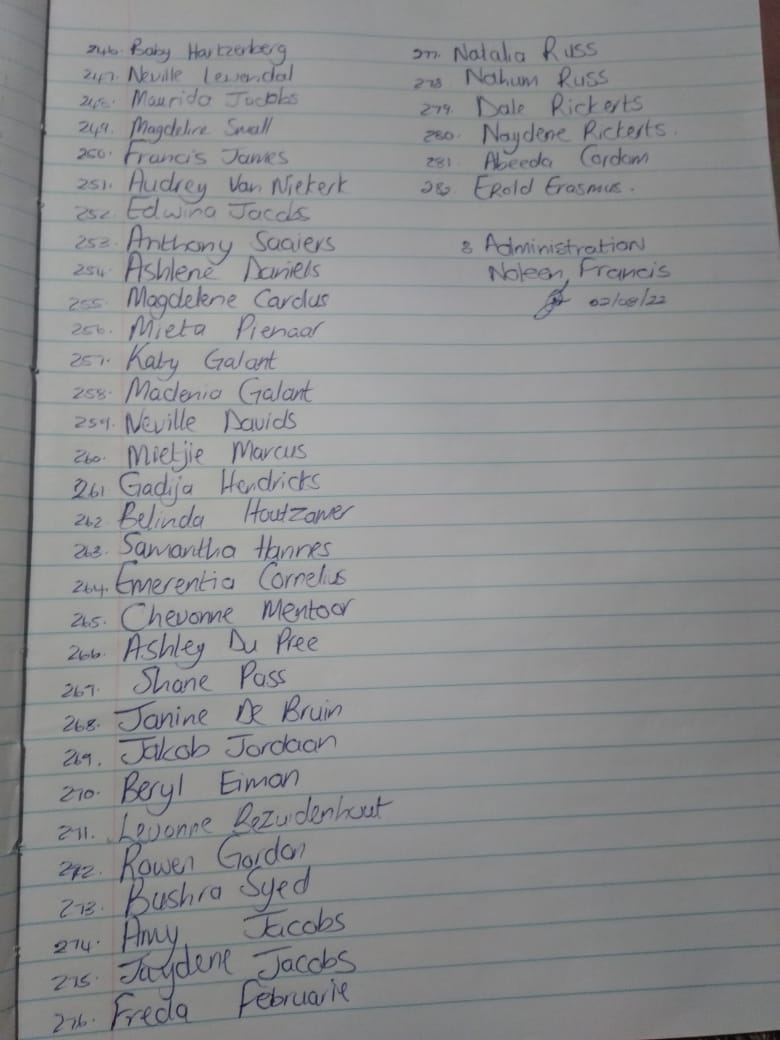 246. Baby Hartzenberg
247. Neville Lewendal
248. Maurida Jacobs
249. Magdeline Small
250. Francis James
251. Audrey Van Niekerk
252. Edwina Jacobs
253. Anthony Saaiers
254. Ashlene Daniels
255. Magdelene Cardus
256. Mieta Pienaar
257. Katy Galant
258. Madenia Galant
259. Neville Davids
260. Mietjie Marcus
261 Gadija Hendricks
262 Belinda Houtzamer
263. Samantha Hannes
264. Emerentia Cornelius
265. Chevonne Mentoor
266. Ashley Du Pree
267. Shane Pass
268. Janine De Bruin
269. Jakob Jordaan
270. Beryl Eiman
271. Levonne Bezuidenhout
272. Rowen Gordon
273. Bushra Syed
274. Amy Jacobs
275. Jaydene Jacobs
276. Freda Februarie
277. Natalia Russ
278 Nahum Russ
279. Dale Rickerts
280. Naydene Rickerts.
281. Abeeda Cordom
282 Erold Erasmus.
Administration
Noleen Francis
02/08/22